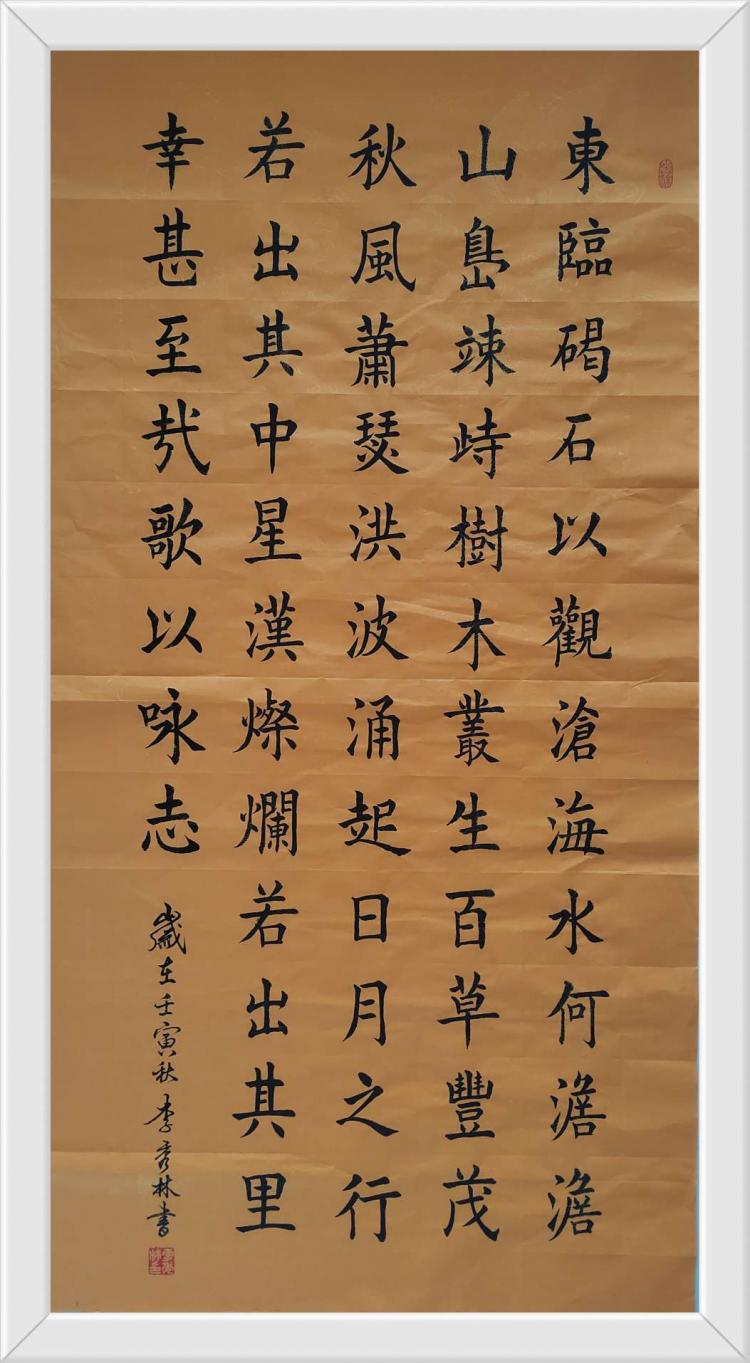 東臨碣石以觀滄海水何澹澹
山島竦峙樹木叢生百草豐茂
秋風蕭瑟洪波涌起日月之行
若出其中星漢燦爛若出其里
幸甚至哉歌以咏志
歲在壬寅秋李秀林書